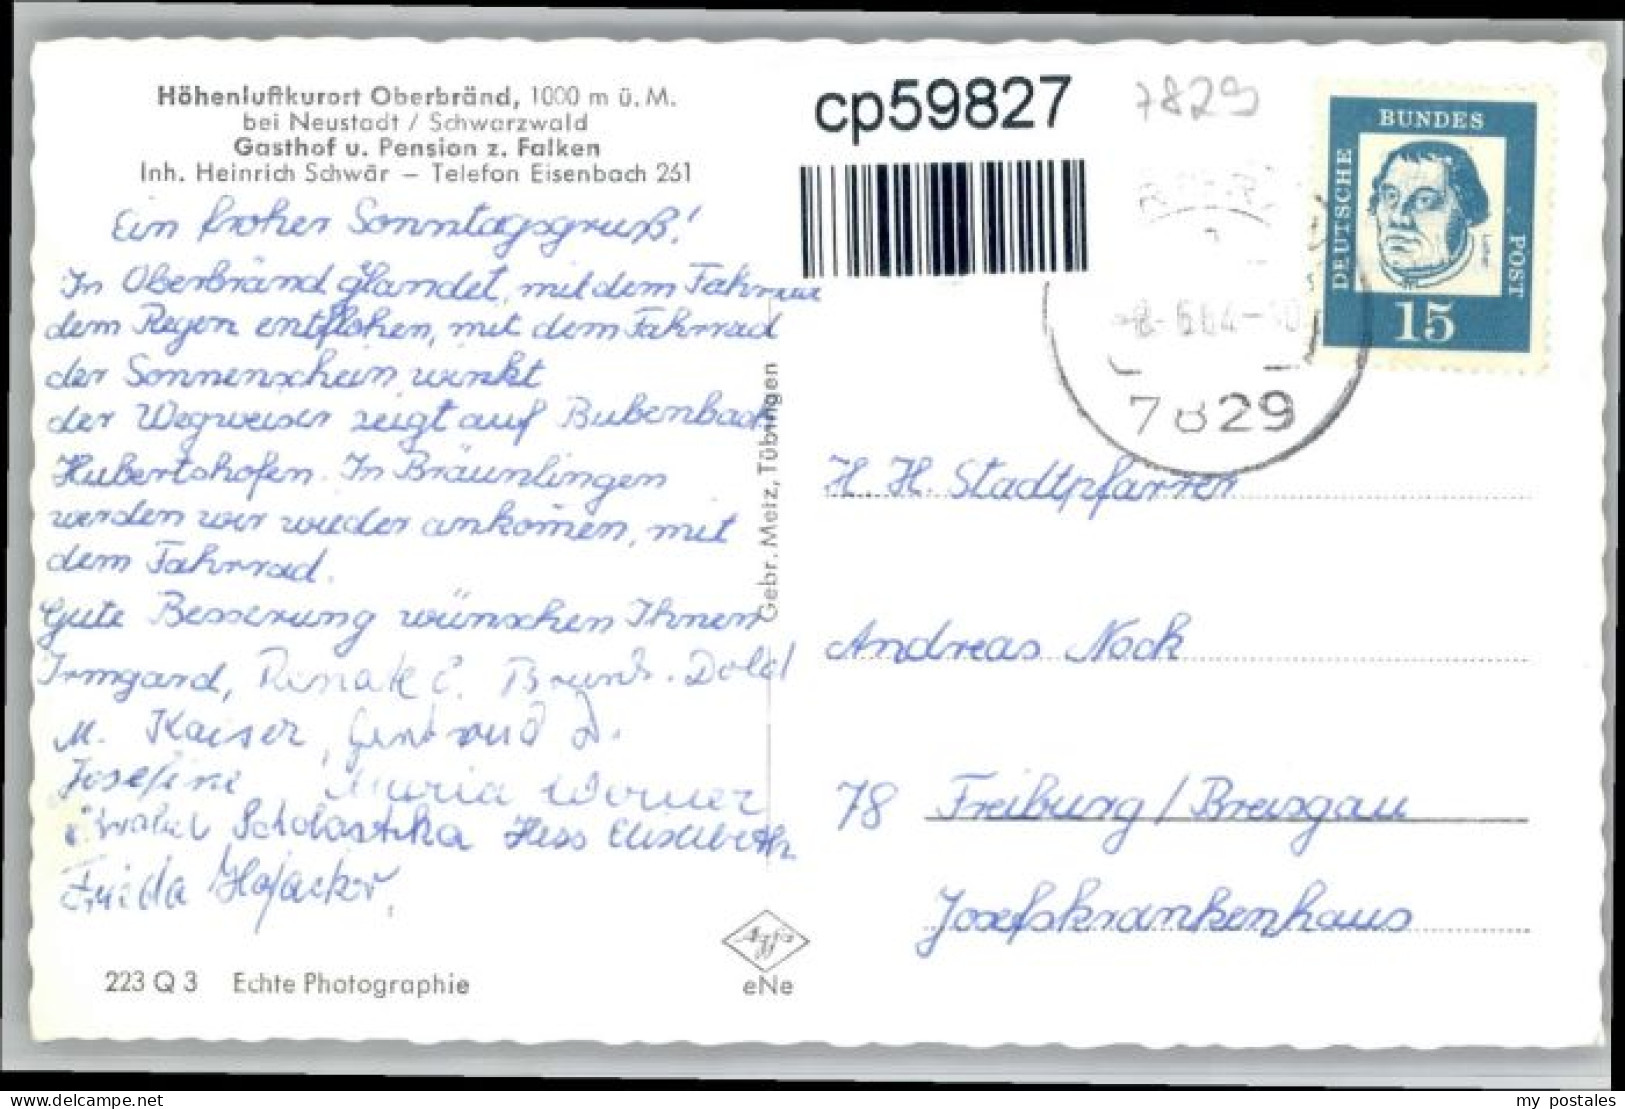 Höhenluftkurort Oberbränd, 1000 m ü. M.
bei Neustadt / Schwarzwald
Gasthof u. Pension z. Falken
Inh. Heinrich Schwär – Telefon Eisenbach 261
Ein froher Sonntagsgruß!
In Oberbränd glandet, mit dem Fahrrad
dem Regen entflohen, mit dem Fahrrad
der Sonnenschein winkt
der Wegweiser zeigt auf Bubenbach
Hubertshofen. In Bräunlingen
werden wir wieder ankom̄en, mit
dem Fahrrad.
Gute Besserung wünschen Ihnen
Irmgard, Renate
M. Kaiser, Gertrud D.
Josefine Maria Worner
Scholastika Hess Elisabeth
Frieda Hofacker,
223 Q 3 Echte Photographie
Gebr. Metz, Tübingen
Agfa
eNe
cp59827
7829
DEUTSCHE
BUNDES
POST
Luther
15
7829
H. H. Stadtpfarrer
Andreas Nock
78 Freiburg / Breisgau
Josefskrankenhaus
www.delcampe.net
my_postales